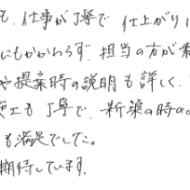 も、仕事が丁寧で 仕上がり
にもかかわらず、担当の方が
や提案時の説明も詳しく、
施工も丁寧で 新築の時の
も満足でした。
期待しています。